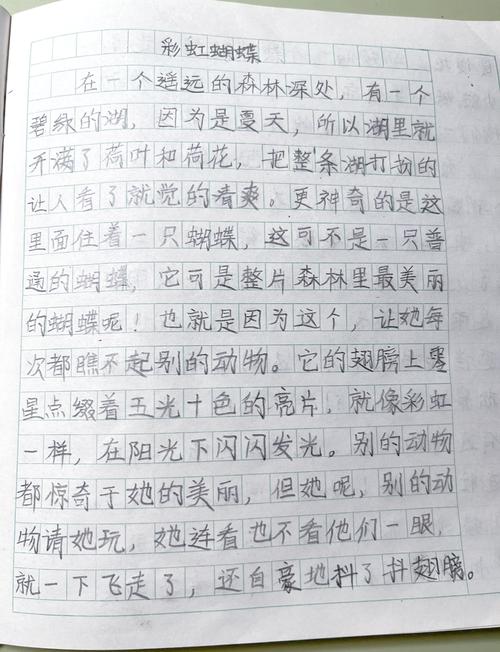 彩虹蝴蝶
在一个遥远的森林深处，有一个
碧绿的湖，因为是夏天，所以湖里就
开满了荷叶和荷花，把整条湖打扮的
让人看了就觉的清爽。更神奇的是这
里面住着一只蝴蝶，这可不是一只普
通的蝴蝶，它可是整片森林里最美丽
的蝴蝶呢！也就是因为这个，让她每
次都瞧不起别的动物。它的翅膀上零
星点缀着五光十色的亮片，就像彩虹
一样，在阳光下闪闪发光。别的动物
都惊奇于她的美丽，但她呢，别的动
物请她玩，她连看也不看他们一眼，
就一下飞走了，还自豪地抖了抖翅膀。